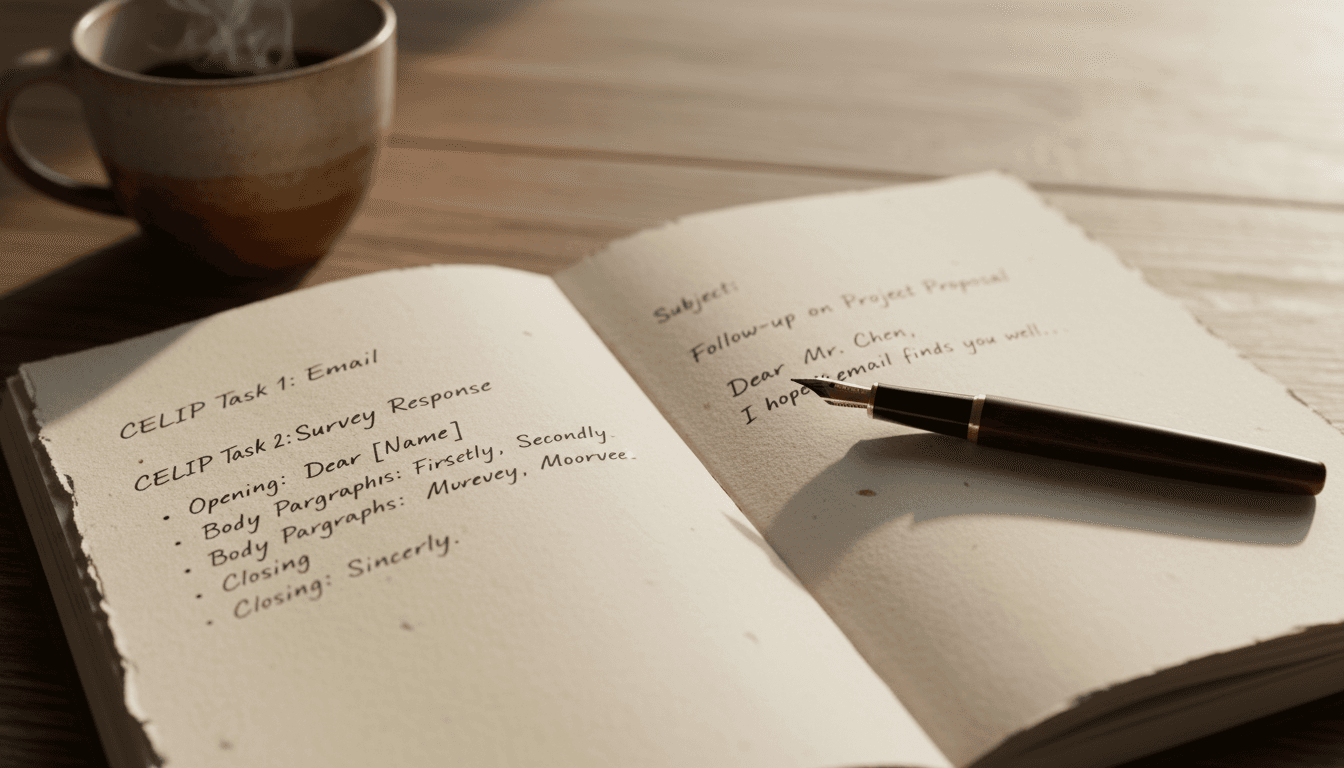 CELIP Task 1: Email
CELIP Task 2: Survey Response
• Opening: Dear [Name]
• Body Pargraphıs: Firsetly, Secondly.
• Body Pargraphs: Murevey, Moorvee.
• Closing
• Closing: Sincerly.
Subject:
Follow-up on Project Proposal
Dear Mr. Chen,
I hope email finds you well...